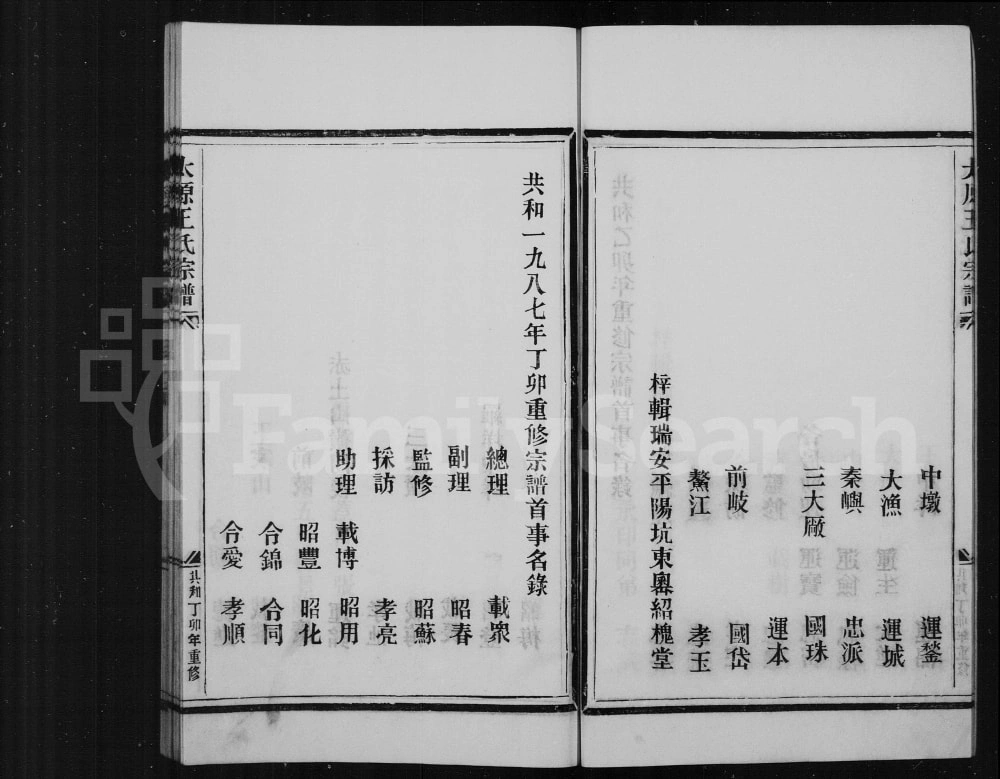 太原王氏宗譜
中墩 運鍫
大漁 運城
秦嶼 忠派
三大厰 國珠
運本
前岐 國岱
鰲江 孝玉
梓輯瑞安平陽坑東嶴紹槐堂
共和丁卯年重修
共和一九八七年丁卯重修宗譜首事名錄
總理 載眾
副理 昭春
監修 昭蘇
採訪 孝亮
助理 載博 昭用
昭豐 昭化
令錦 令同
令愛 孝順
太原王氏宗譜
共和丁卯年重修
FamilySearch